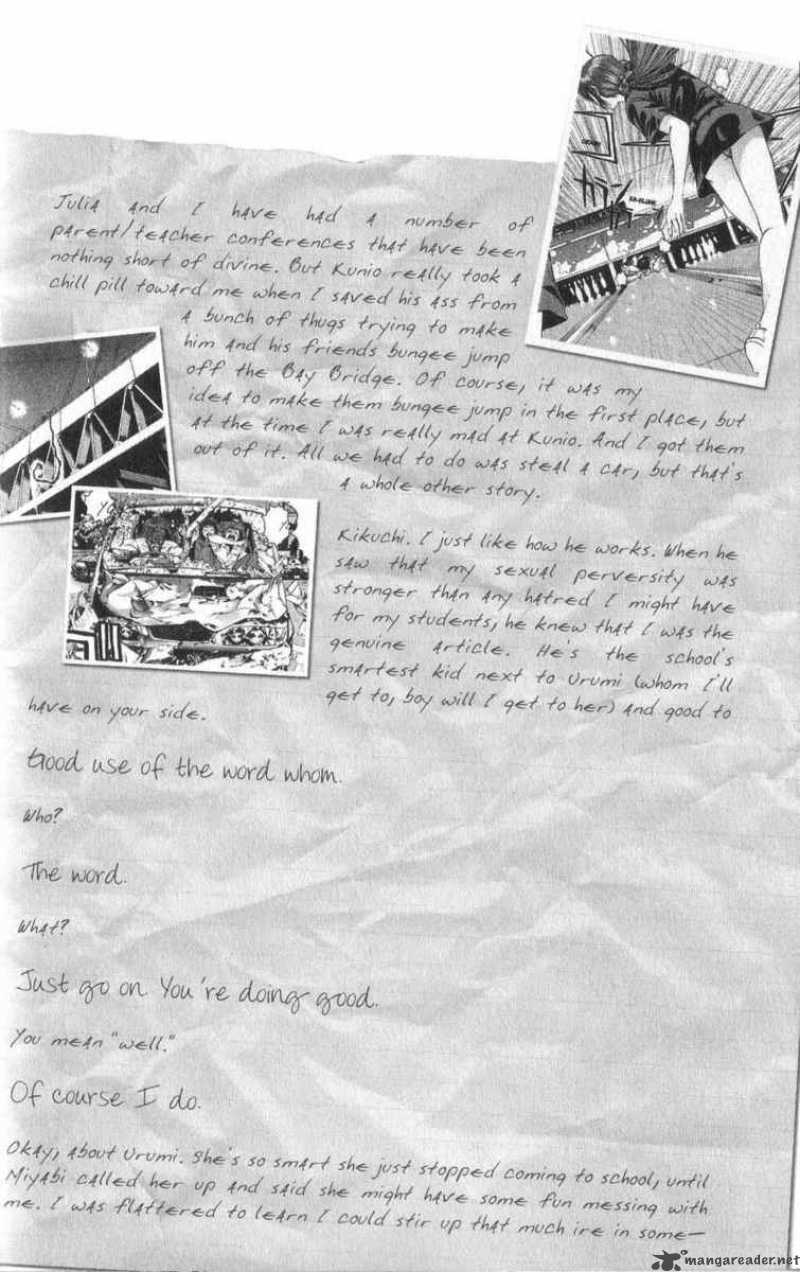 Julia and I have had a number of
parent/teacher conferences that have been
nothing short of divine. But Kunio really took a
chill pill toward me when I saved his ass from
a bunch of thugs trying to make
him and his friends bungee jump
off the Bay Bridge. Of course, it was my
idea to make them bungee jump in the first place, but
at the time I was really mad at Kunio. And I got them
out of it. All we had to do was steal a car, but that's
a whole other story.
Kikuchi. I just like how he works. When he
saw that my sexual perversity was
stronger than any hatred I might have
for my students, he knew that I was the
genuine article. He's the school's
smartest kid next to Urumi (whom I'll
get to, boy will I get to her) and good to
have on your side.
Good use of the word whom.
Who?
The word.
What?
Just go on. You're doing good.
You mean "well."
Of course I do.
Okay, about Urumi. She's so smart she just stopped coming to school, until
Miyabi called her up and said she might have some fun messing with
me. I was flattered to learn I could stir up that much ire in some—
mangareader.net